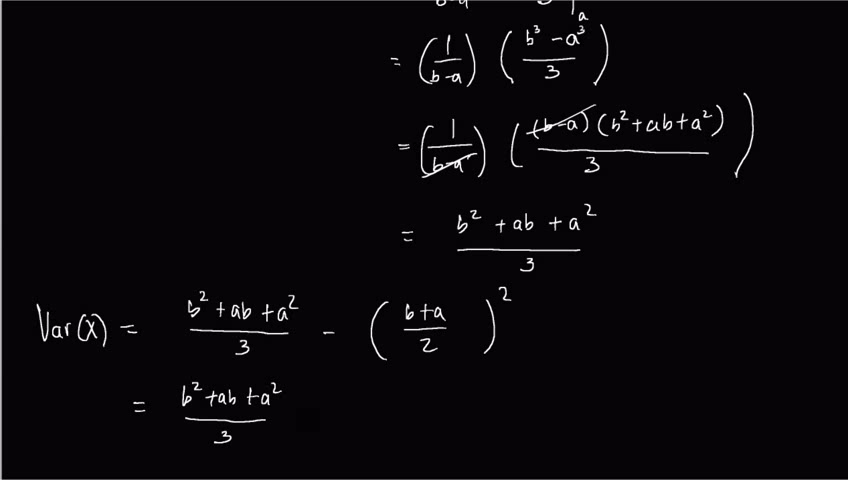 = (1/(b-a)) ((b³ - a³)/3)
= (1/(b-a)) ((b-a)(b² + ab + a²)/3)
= (b² + ab + a²)/3
Var(X) = (b² + ab + a²)/3 - ((b+a)/2)²
= (b² + ab + a²)/3